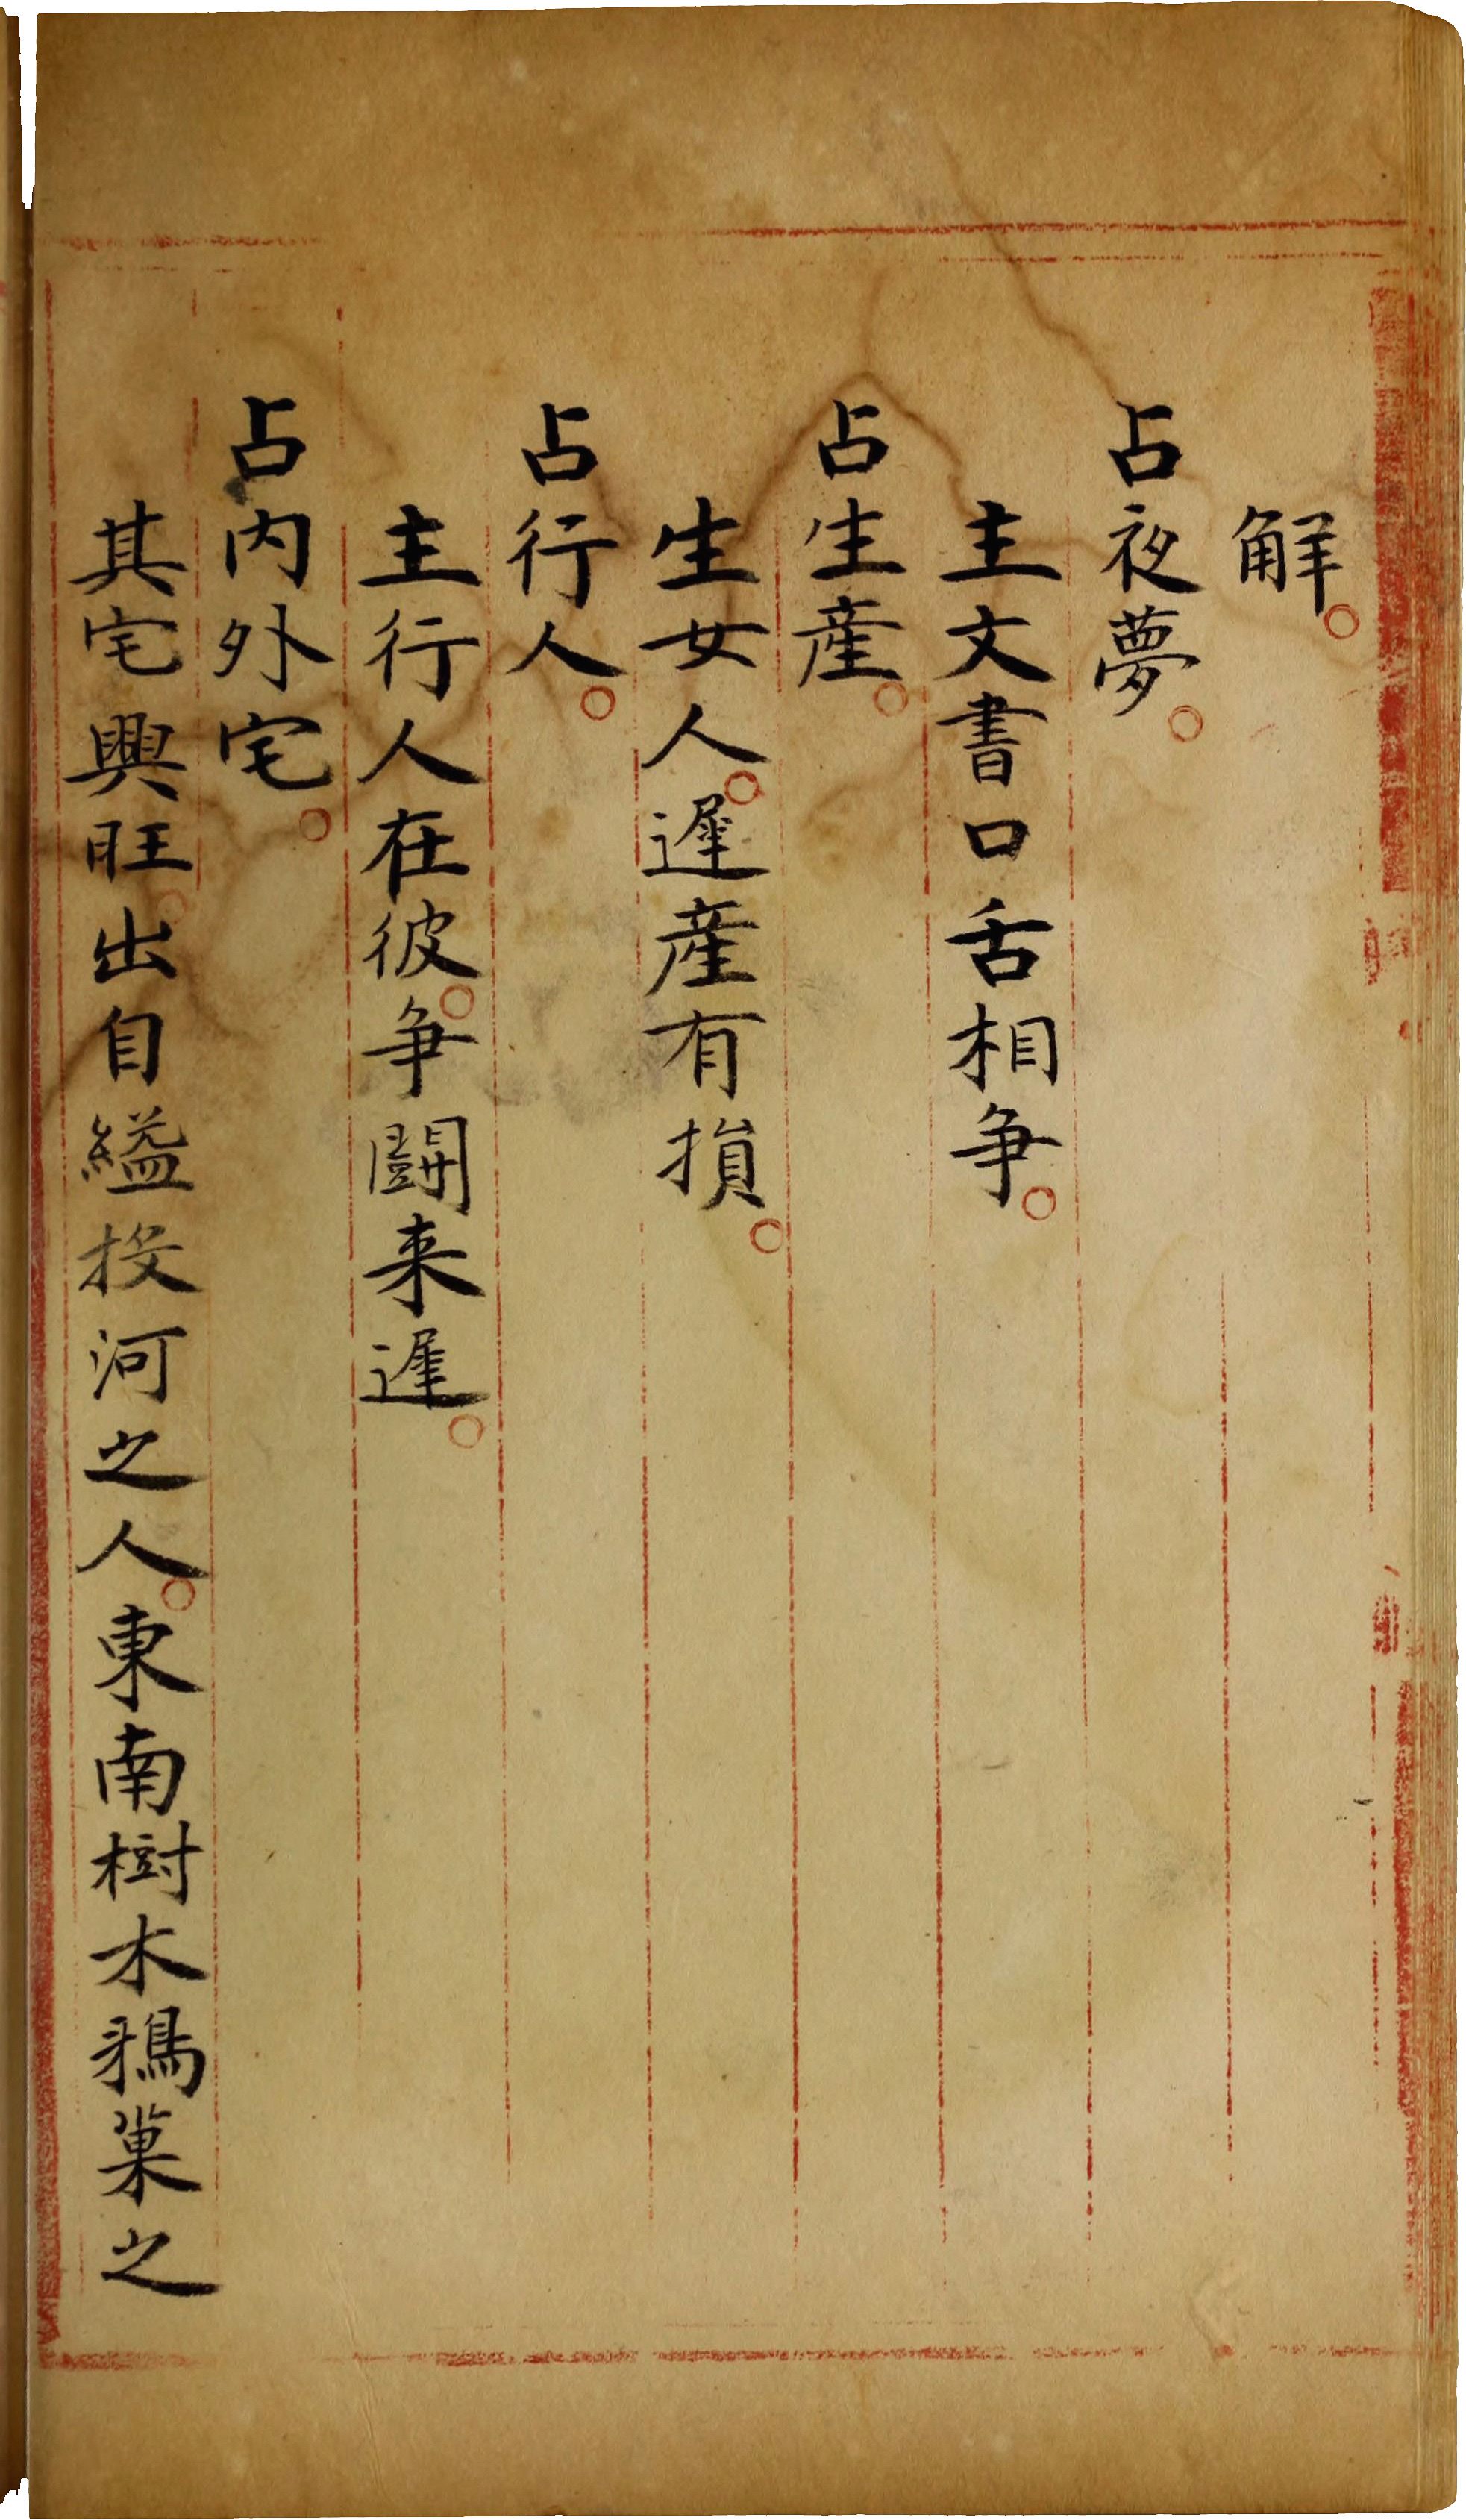 解。
占夜夢。
主文書口舌相争。
占生産。
生女人。遲産有損。
占行人。
主行人在彼。争鬪来遲。
占内外宅。
其宅興旺。出自縊投河之人。東南樹木鵶巢之